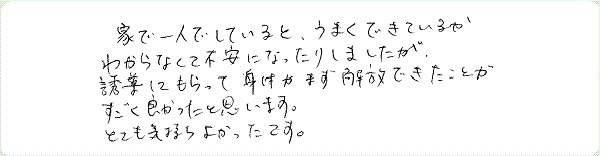 家で一人でしていると、うまくできているか
わからなくて不安になったりしましたが、
誘導してもらって身体がまず解放できたことが
すごく良かったと思います。
とても気持ちよかったです。